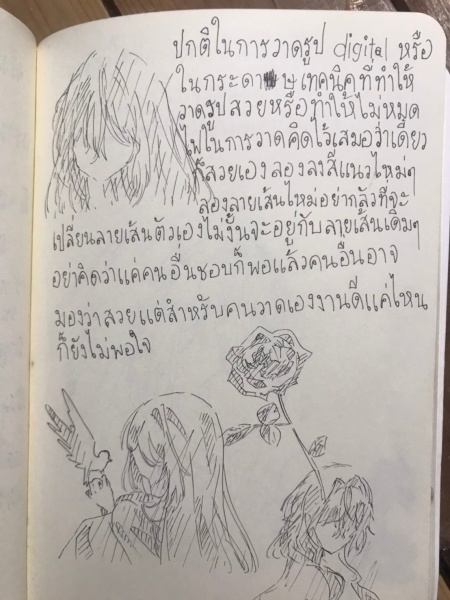 ปกติในการวาดรูป digital หรือ
ในกระดาษ เทคนิคที่ทำให้
วาดรูปสวยหรือทำให้ไม่หมด
ไฟในการวาดคิดไว้เสมอว่าเดี๋ยว
ก็สวยเองลองลงสีแนวใหม่ๆ
ลองลายเส้นใหม่อย่ากลัวที่จะ
เปลี่ยนลายเส้นตัวเองไม่งั้นจะอยู่กับลายเส้นเดิมๆ
อย่าคิดว่าแค่คนอื่นชอบก็พอแล้วคนอื่นอาจ
มองว่าสวยแต่สำหรับคนวาดเองงานดีแค่ไหน
ก็ยังไม่พอใจ